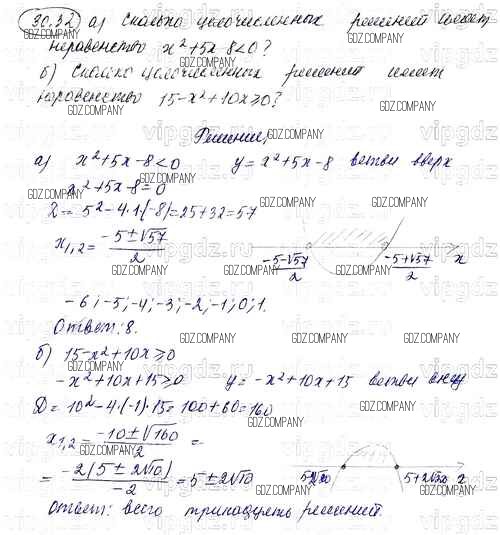 30.32 а) Сколько целочисленных решений имеет
неравенство x²+5x-8<0?
б) Сколько целочисленных решений имеет
неравенство 15-x²+10x≥0?
Решение,
а) x²+5x-8<0 y=x²+5x-8 ветви вверх
x²+5x-8=0
D=5²-4·1·(-8)=25+32=57
x1,2= (-5±√57)/2
(-5-√57)/2 (-5+√57)/2 x
-6; -5; -4; -3; -2; -1; 0; 1.
Ответ: 8.
б) 15-x²+10x≥0
-x²+10x+15≥0 y=-x²+10x+15 ветви вниз
D=10²-4·(-1)·15=100+60=160
x1,2= (-10±√160)/2 =
= -2(5±2√10)/-2 = 5±2√10
5-2√10 5+2√10 x
Ответ: всего тринадцать решений.
GDZ.COMPANY
vipgdz.ru